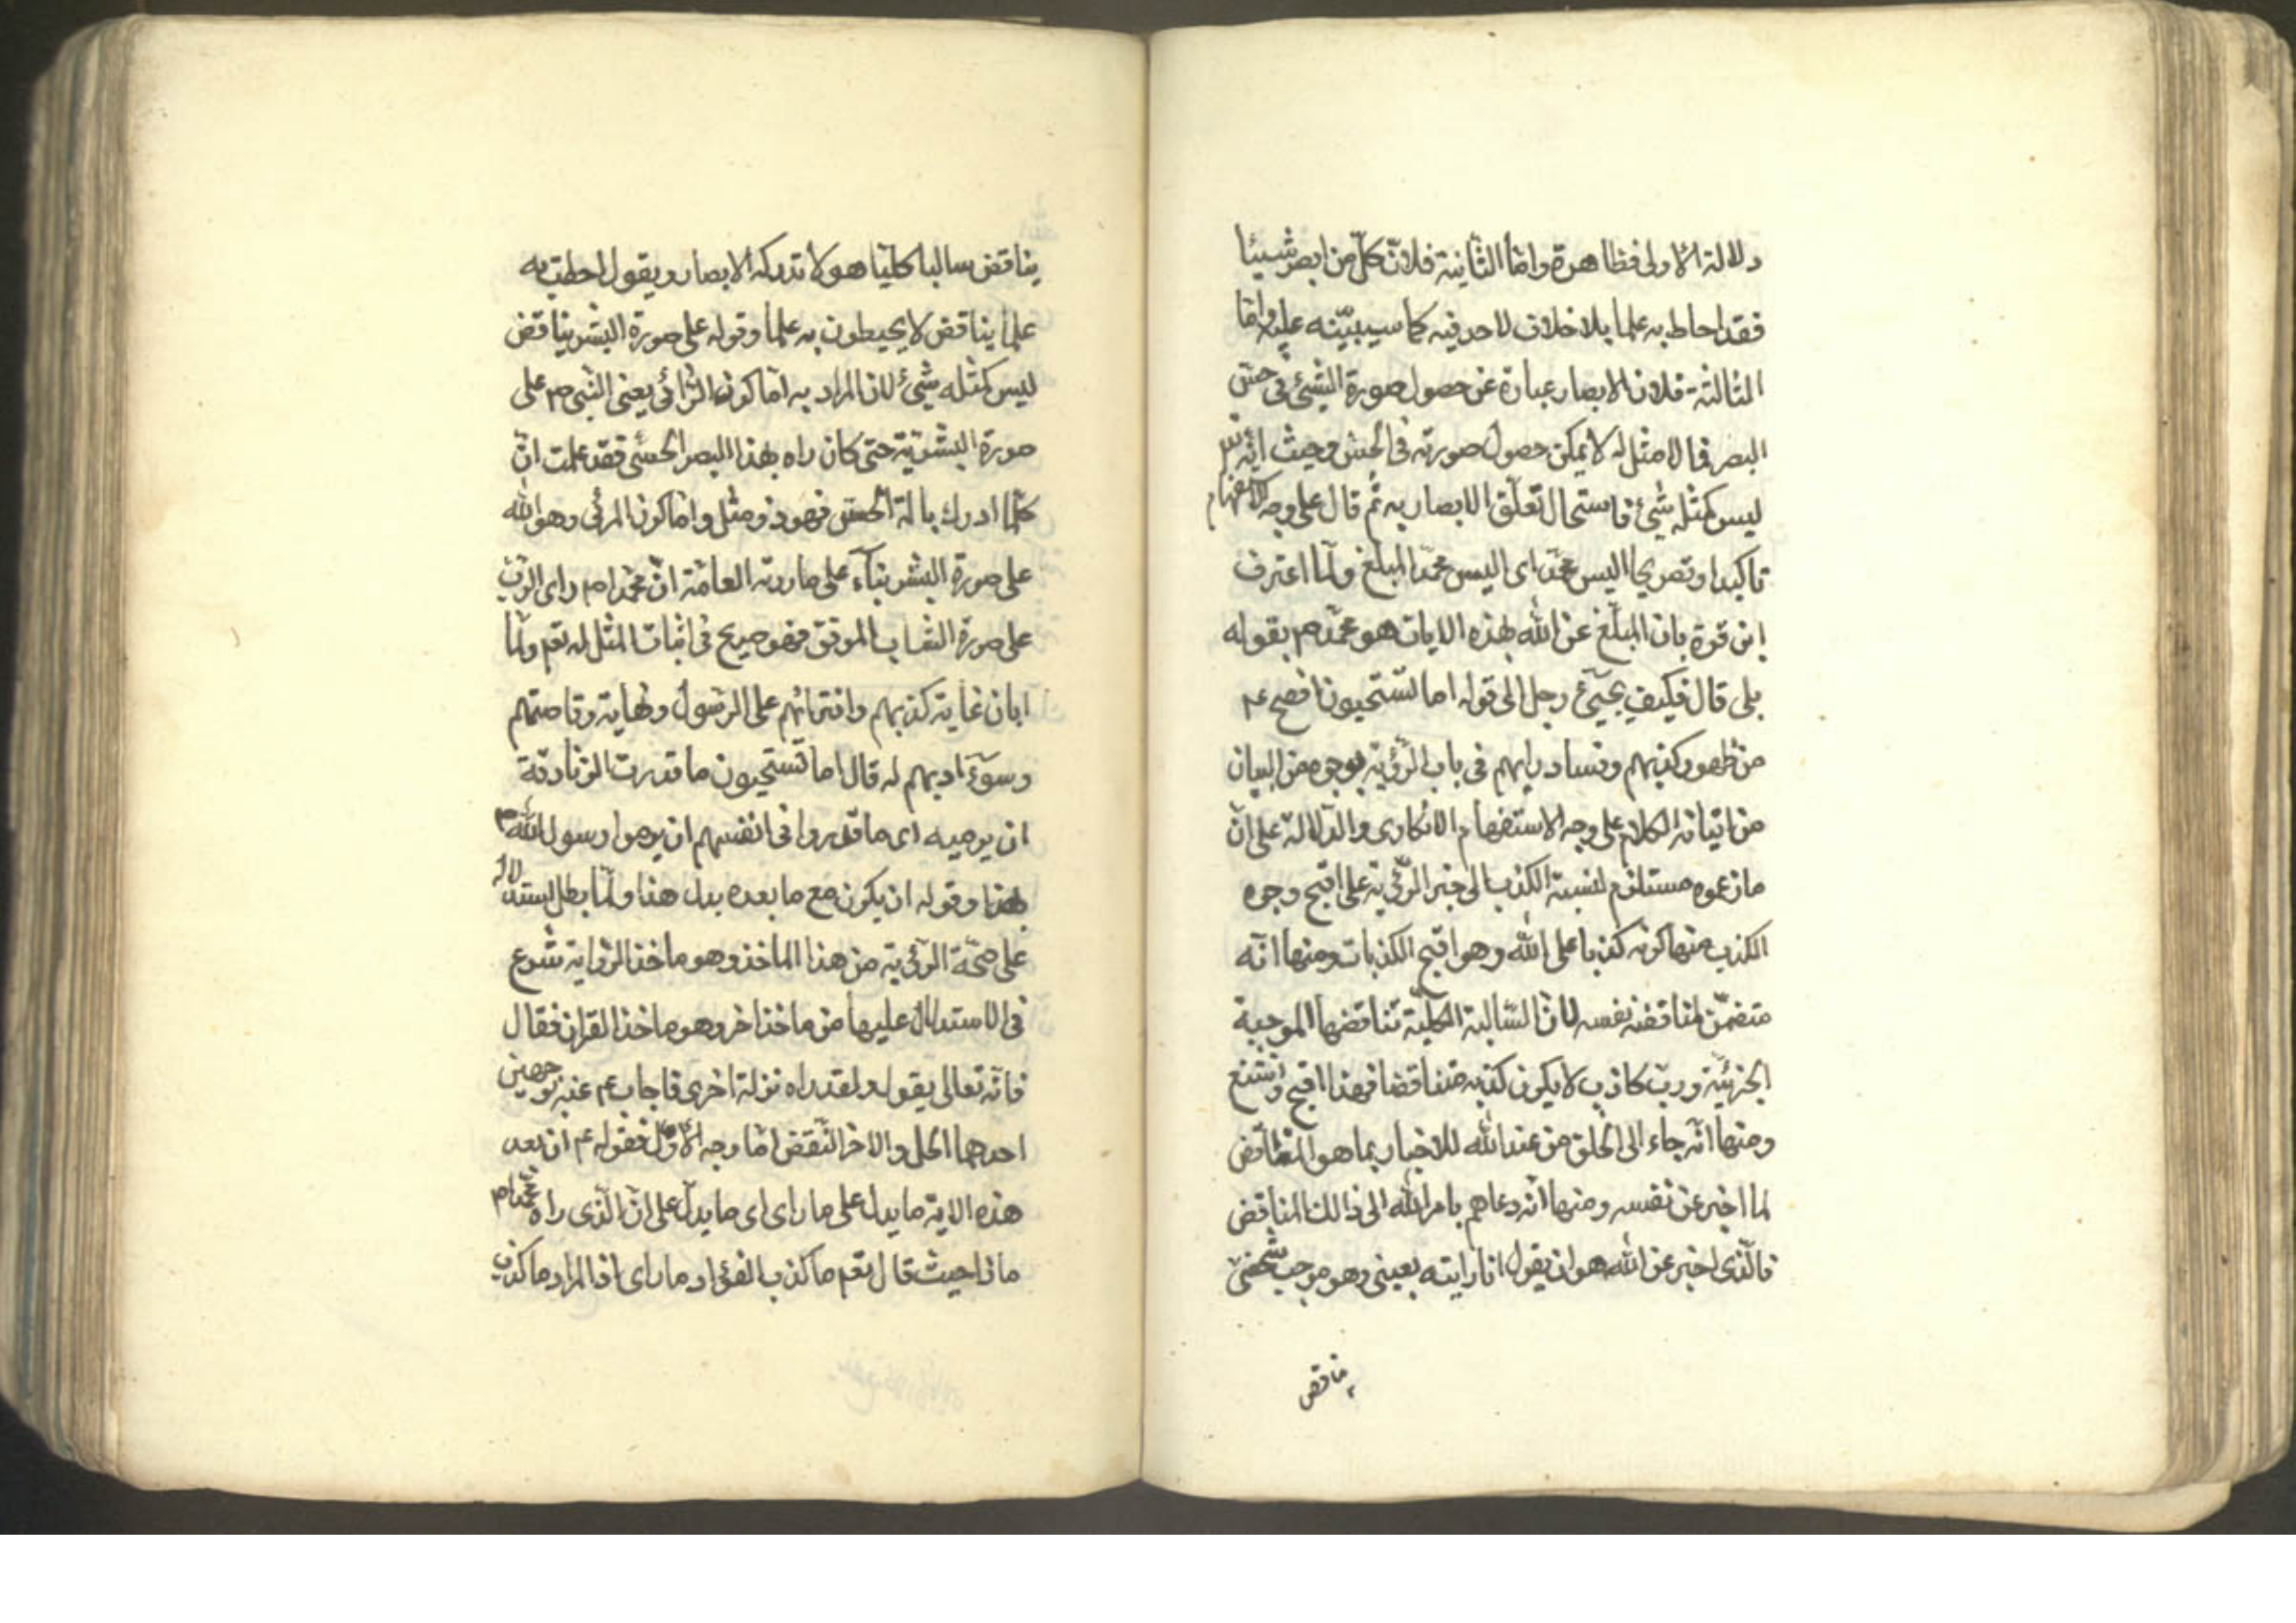 دلالة الاولى فظاهرة واما الثانية فلانّ كلّ من ابصر شيئا
فقد احاط به علما بلا خلاف لاحد فيه كما سيبيّنه عليه واما
الثالثة فلان الابصار عبارة عن حصول صورة الشئ فى حس
البصر فما لا مثل له لا يمكن حصول صورته فى الحس وحيث انه تع
ليس كمثله شئ فاستحال تعلّق الابصار به ثم قال على وجه الاستفهام
تاكيدا وتصريحا اليس محمّد اى اليس محمّد المبلغ ولمّا اعترف
ابن قرة بان المبلّغ عن الله بهذه الايات هو محمّد ص بقوله
بلى قال فكيف يجيئ رجل الى قوله اما تستحيون افصح ع
من ظهور كذبهم وفساد رايهم فى باب الرؤية بوجوه من البيان
من اتيانه الكلام على وجه الاستفهام الانكارى والدلالة على انّ
ما زعموه مستلزم لنسبة الكذب الى خبر الرؤية على اقبح وجوه
الكذب منها كونه كذبا على الله وهو اقبح الكذبات ومنها انّه
متضمّن لمناقضة نفسه لان السّالبة الكليّة تناقضها الموجبة
الجزئيّة وربّ كاذب لا يكون كذبه متناقضا فهذا اقبح واشنع
ومنها انّه جاء الى الخلق من عند الله للاخبار بما هو المناقض
لما اخبر عن نفسه ومنها انّه دعاهم بامر الله الى ذالك المناقض
فالّذى اخبر عن الله هو ان يقول انا رايته بعينى وهو موجب شخصىّ
يناقض
يناقض سالبا كليّا هو لا تدركه الابصار ويقول احطت به
علما يناقض لا يحيطون به علما وقوله على صورة البشر يناقض
ليس كمثله شئ لان المراد به امّا كون الرّائى يعنى النّبى ص على
صورة البشريّة حتى كان راه بهذا البصر الحسّى فقد علمت انّ
كلّما ادرك بالة الحس فهو ذو مثل واما كون المرئى وهو الله
على صورة البشر بناء على ما روته العامّة انّ محمّدا ص راى الربّ
على صورة الشاب الموفق فهو صريح فى اثبات المثل له تعم ولمّا
ابان غاية كذبهم وافترائهم على الرسول ونهاية وقاحتهم
وسوء ادبهم له قال اما تستحيون ما قدرت الزنادقة
ان يرميه اى ما قدروا فى انفسهم ان يرموا رسول الله ص
بهذا وقوله ان يكون مع ما بعده بدل هذا ولمّا بطل استدلاله
على صحّة الرؤية من هذا الماخذ وهو ماخذ الرواية شرع
فى الاستدلال عليها من ماخذ اخر وهو ماخذ القران فقال
فانّه تعالى يقول ولقد راه نزلة اخرى فاجاب ع عنه بوجهين
احدهما الحل والاخر النّقض امّا وجه الاوّل فقوله ع ان بعد
هذه الاية ما يدل على ما راى اى ما يدلّ على انّ الّذى راه محمّد ص
ماذا حيث قال تعم ما كذب الفؤاد ما راى اذ المراد ما كذب